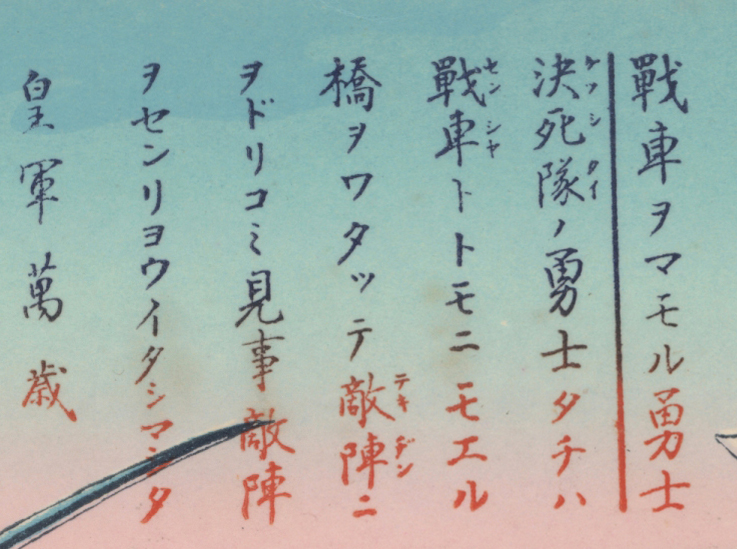 戰車ヲマモル勇士
決死隊ノ勇士タチハ
戰車トトモニモエル
橋ヲワタッテ敵陣ニ
ヲドリコミ見事敵陣
ヲセンリヨウイタシマシタ
皇軍萬歳
ケツシタイ
センシヤ
テキヂン